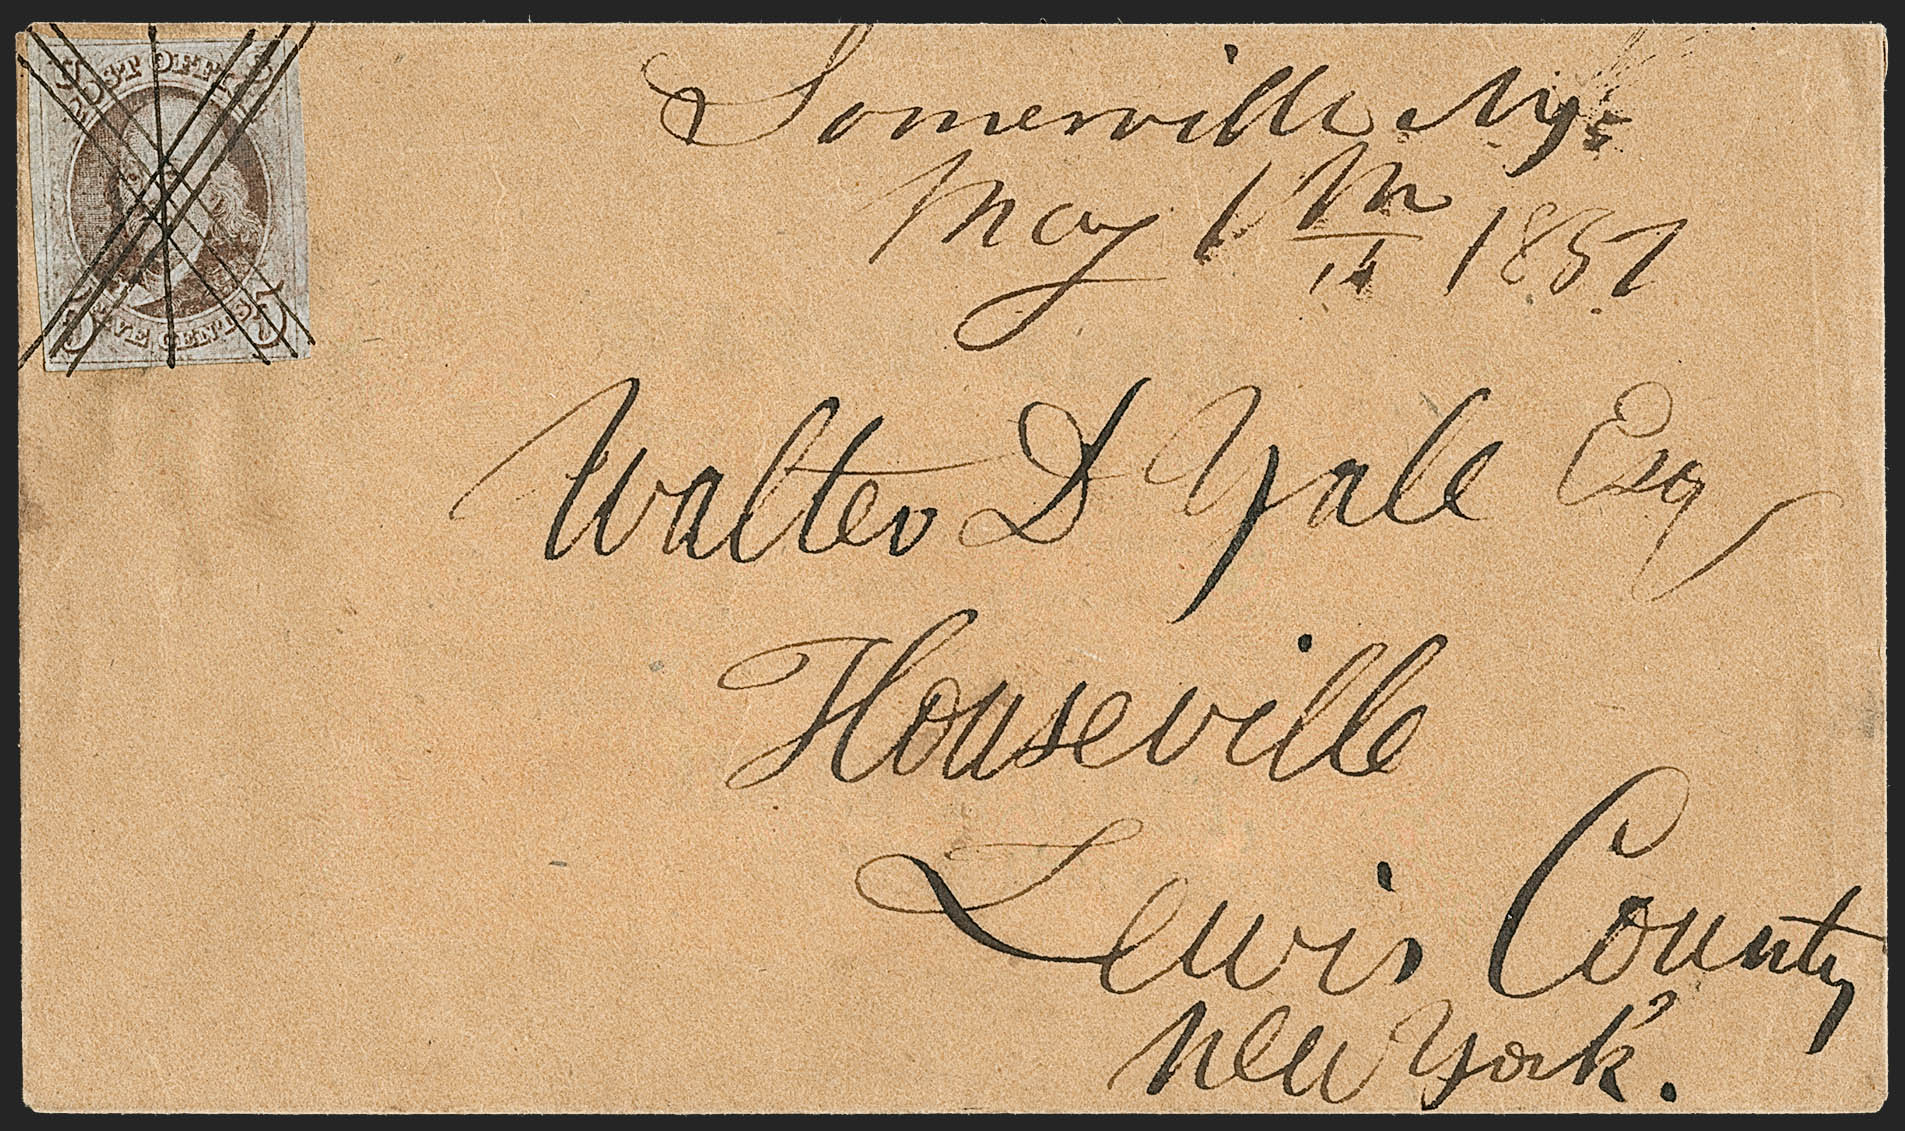 POST OFFICE
FIVE CENTS
5 5
Somerville Ny.
May 1 1857
Walter D Yale Esq
Houseville
Lewis County
New York.